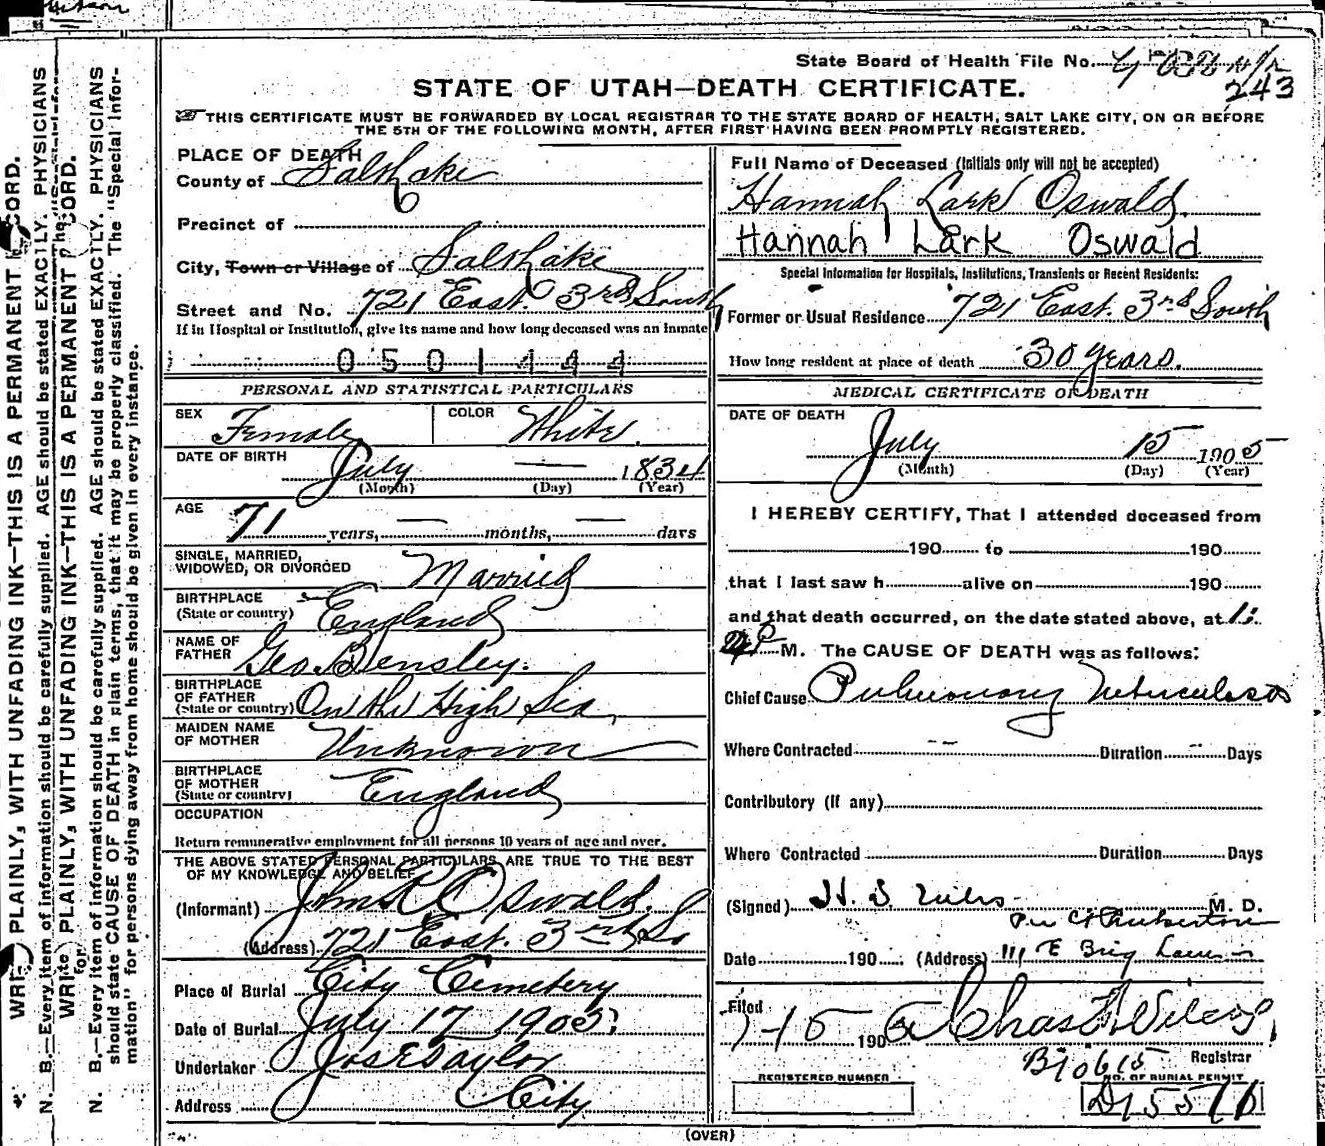 State Board of Health File No.
243
STATE OF UTAH—DEATH CERTIFICATE.
THIS CERTIFICATE MUST BE FORWARDED BY LOCAL REGISTRAR TO THE STATE BOARD OF HEALTH, SALT LAKE CITY, ON OR BEFORE
THE 5TH OF THE FOLLOWING MONTH, AFTER FIRST HAVING BEEN PROMPTLY REGISTERED.
PLACE OF DEATH
County of Salt Lake
Precinct of
City, Town or Village of Salt Lake
Street and No. 721 East 3rd South
If in Hospital or Institution, give its name and how long deceased was an inmate
0501444
PERSONAL AND STATISTICAL PARTICULARS
SEX Female COLOR White
DATE OF BIRTH July — 1834
(Month) (Day) (Year)
AGE 71 years, — months, — days
SINGLE, MARRIED,
WIDOWED, OR DIVORCED Married
BIRTHPLACE
(State or country) England
NAME OF
FATHER Geo. Bensley.
BIRTHPLACE
OF FATHER
(State or country) On the High Sea
MAIDEN NAME
OF MOTHER Unknown
BIRTHPLACE
OF MOTHER
(State or country) England
OCCUPATION
Return remunerative employment for all persons 10 years of age and over.
THE ABOVE STATED PERSONAL PARTICULARS ARE TRUE TO THE BEST
OF MY KNOWLEDGE AND BELIEF
(Informant) John R Oswald.
(Address) 721 East. 3rd So
Place of Burial City Cemetery
Date of Burial July 17 1905
Undertaker Jos E Taylor
Address City
Full Name of Deceased (Initials only will not be accepted)
Hannah Lark Oswald.
Hannah Lark Oswald
Special Information for Hospitals, Institutions, Transients or Recent Residents:
Former or Usual Residence 721 East. 3rd South
How long resident at place of death 30 years.
MEDICAL CERTIFICATE OF DEATH
DATE OF DEATH
July 15 1905
(Month) (Day) (Year)
I HEREBY CERTIFY, That I attended deceased from
190 to 190
that I last saw h alive on 190
and that death occurred, on the date stated above, at 1:
P M. The CAUSE OF DEATH was as follows:
Chief Cause Pulmonary Tuberculosis
Where Contracted -- Duration -- Days
Contributory (If any)
Where Contracted Duration Days
(Signed) H. S. M. D.
Date 190 (Address) 111 E Brig
Filed 7-15 1905 Chas
Registrar
B10615
REGISTERED NUMBER
NO. OF BURIAL PERMIT
(OVER)
WRITE PLAINLY, WITH UNFADING INK—THIS IS A PERMANENT RECORD.
N. B.—Every item of information should be carefully supplied. AGE should be stated EXACTLY. PHYSICIANS
WRITE PLAINLY, WITH UNFADING INK—THIS IS A PERMANENT RECORD.
N. B.—Every item of information should be carefully supplied. AGE should be stated EXACTLY. PHYSICIANS
should state CAUSE OF DEATH in plain terms, that it may be properly classified. The "Special Infor-
mation" for persons dying away from home should be given in every instance.